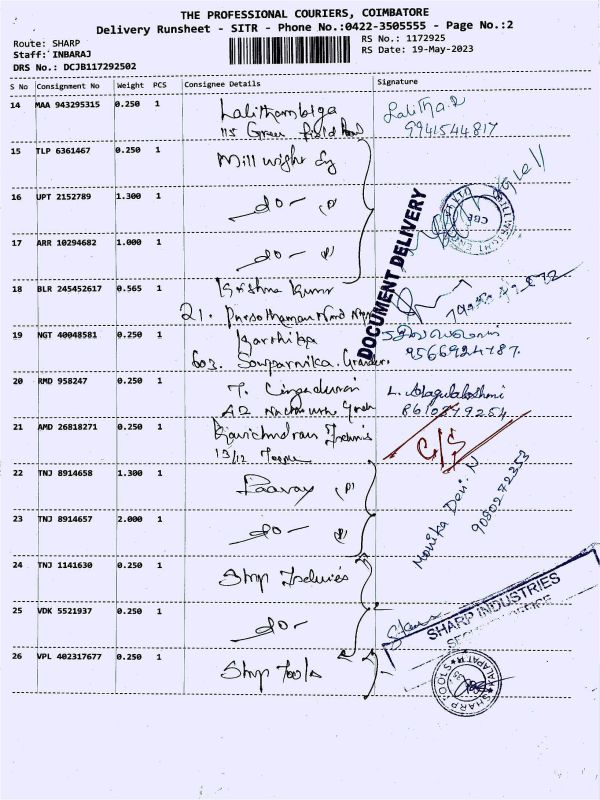 THE PROFESSIONAL COURIERS, COIMBATORE
Delivery Runsheet - SITR - Phone No.:0422-3505555 - Page No.:2
Route: SHARP
Staff: INBARAJ
DRS No.: DCJB117292502
RS No.: 1172925
RS Date: 19-May-2023
S No Consignment No Weight PCS Consignee Details Signature
14 MAA 943295315 0.250 1 Lalithambiga Lalitha.R
115 Green field 9941544817
15 TLP 6361467 0.250 1 Mill wright
16 UPT 2152789 1.300 1 -do- (P)
17 ARR 10294682 1.000 1 -do-
DOCUMENT DELIVERY
18 BLR 245452617 0.565 1 Krishna Kumar
21.
19 NGT 40048581 0.250 1 Karthika
603. Sowparnika. 9566924787.
20 RMD 958247 0.250 1 T.
L. Alagulakshmi
8610879254
21 AMD 26818271 0.250 1 Ravichndran
13/12 C/S
22 TNJ 8914658 1.300 1 Paavay (P)
Monika Devi. N
9080272353
23 TNJ 8914657 2.000 1 -do-
24 TNJ 1141630 0.250 1 Shrp
25 VDK 5521937 0.250 1 -do-
SHARP INDUSTRIES
26 VPL 402317677 0.250 1 Shrp Tools
SHARP TOOLS